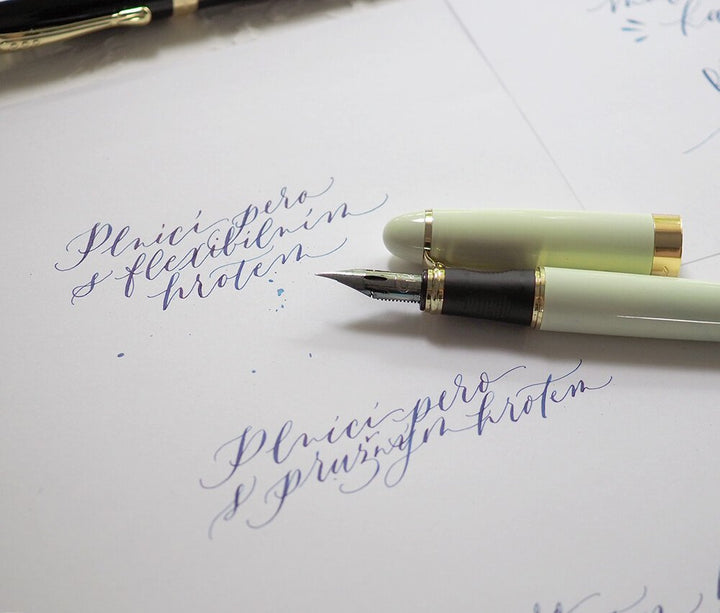 Plnicí pero
s flexibilním
hrotem
Plnicí pero
s pružným hrotem